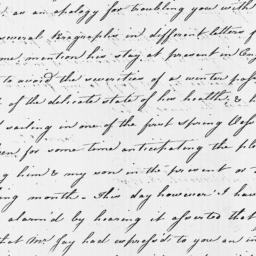 as an apology for troubling you with
several Paragraphs in different letters
mention his stay at present in
to avoid the severities of a winter
of the delicate state of his health, &
sailing in one of the first Spring
for some time anticipating the
him & my son in the present or
month. This day however I have
alarm'd by hearing it asserted that
that Mr. Jay had express'd to you an in